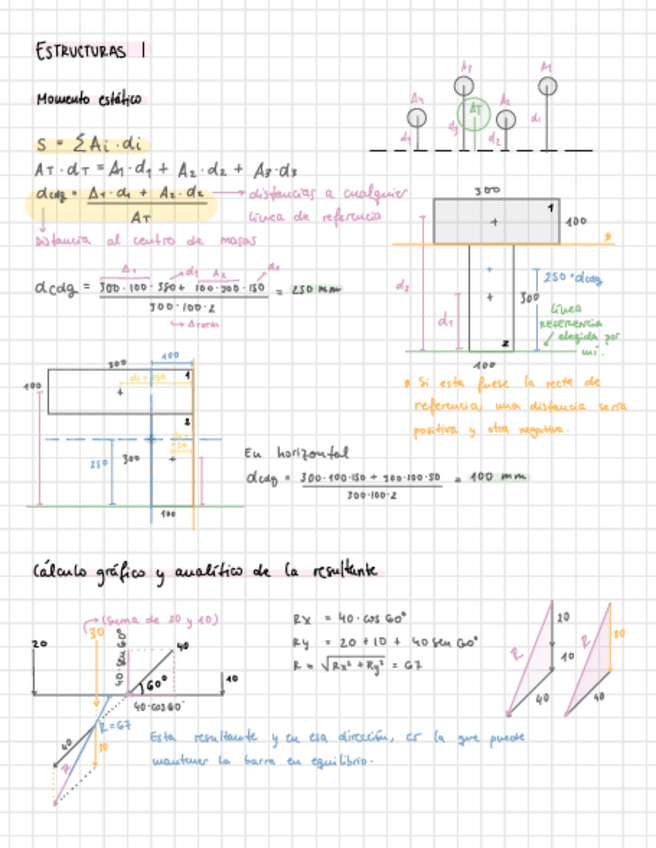 ESTRUCTURAS 1
Momento estático
S = ΣAi · di
AT · dT = A1 · d1 + A2 · d2 + A3 · d3
dcdg = A1 · d1 + A2 · d2 / AT
distancias a cualquier
línea de referencia
Distancia al centro de masas
A4
A3
AT
A2
A1
d4
d3
d2
d1
dcdg = 300·100·350 + 100·300·150 / 300·100·2 = 250 mm
A1
d1
A2
d2
ATOTAL
300
1
100
*
d2
d1
250 = dcdg
300
2
100
línea
REFERENCIA
elegida por
mi.
* Si esta fuese la recta de
referencia, una distancia sería
positiva y otra negativa.
100
300
100
d1 = 150
1
2
50
250
300
100
En horizontal
dcdg = 300·100·150 + 300·100·50 / 300·100·2 = 100 mm
Cálculo gráfico y analítico de la resultante
(suma de 20 y 10)
20
30
40·sen 60°
40
60°
10
40·cos 60°
R=67
40
30
R
Rx = 40 · cos 60°
Ry = 20 + 10 + 40 sen 60°
R = √Rx² + Ry² = 67
R
20
10
40
R
30
40
Esta resultante y en esa dirección, es la que puede
mantener la barra en equilibrio.